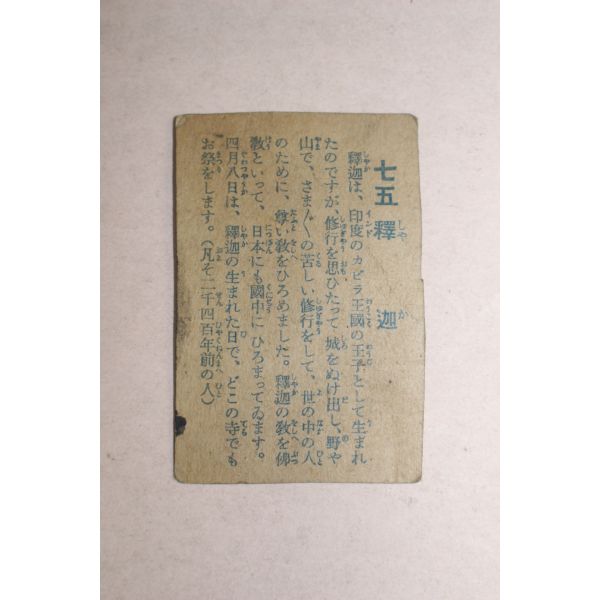 七五 釋迦
釋迦は、印度のカビラ王國の王子として生まれ
たのですが、修行を思ひたって城をぬけ出し、野や
山で、さま〲の苦しい修行をして、世の中の人
のために、尊い敎をひろめました。釋迦の敎を佛
敎といって、日本にも國中にひろまってゐます。
四月八日は、釋迦の生まれた日で、どこの寺でも
お祭をします。(凡そ二千四百年前の人)